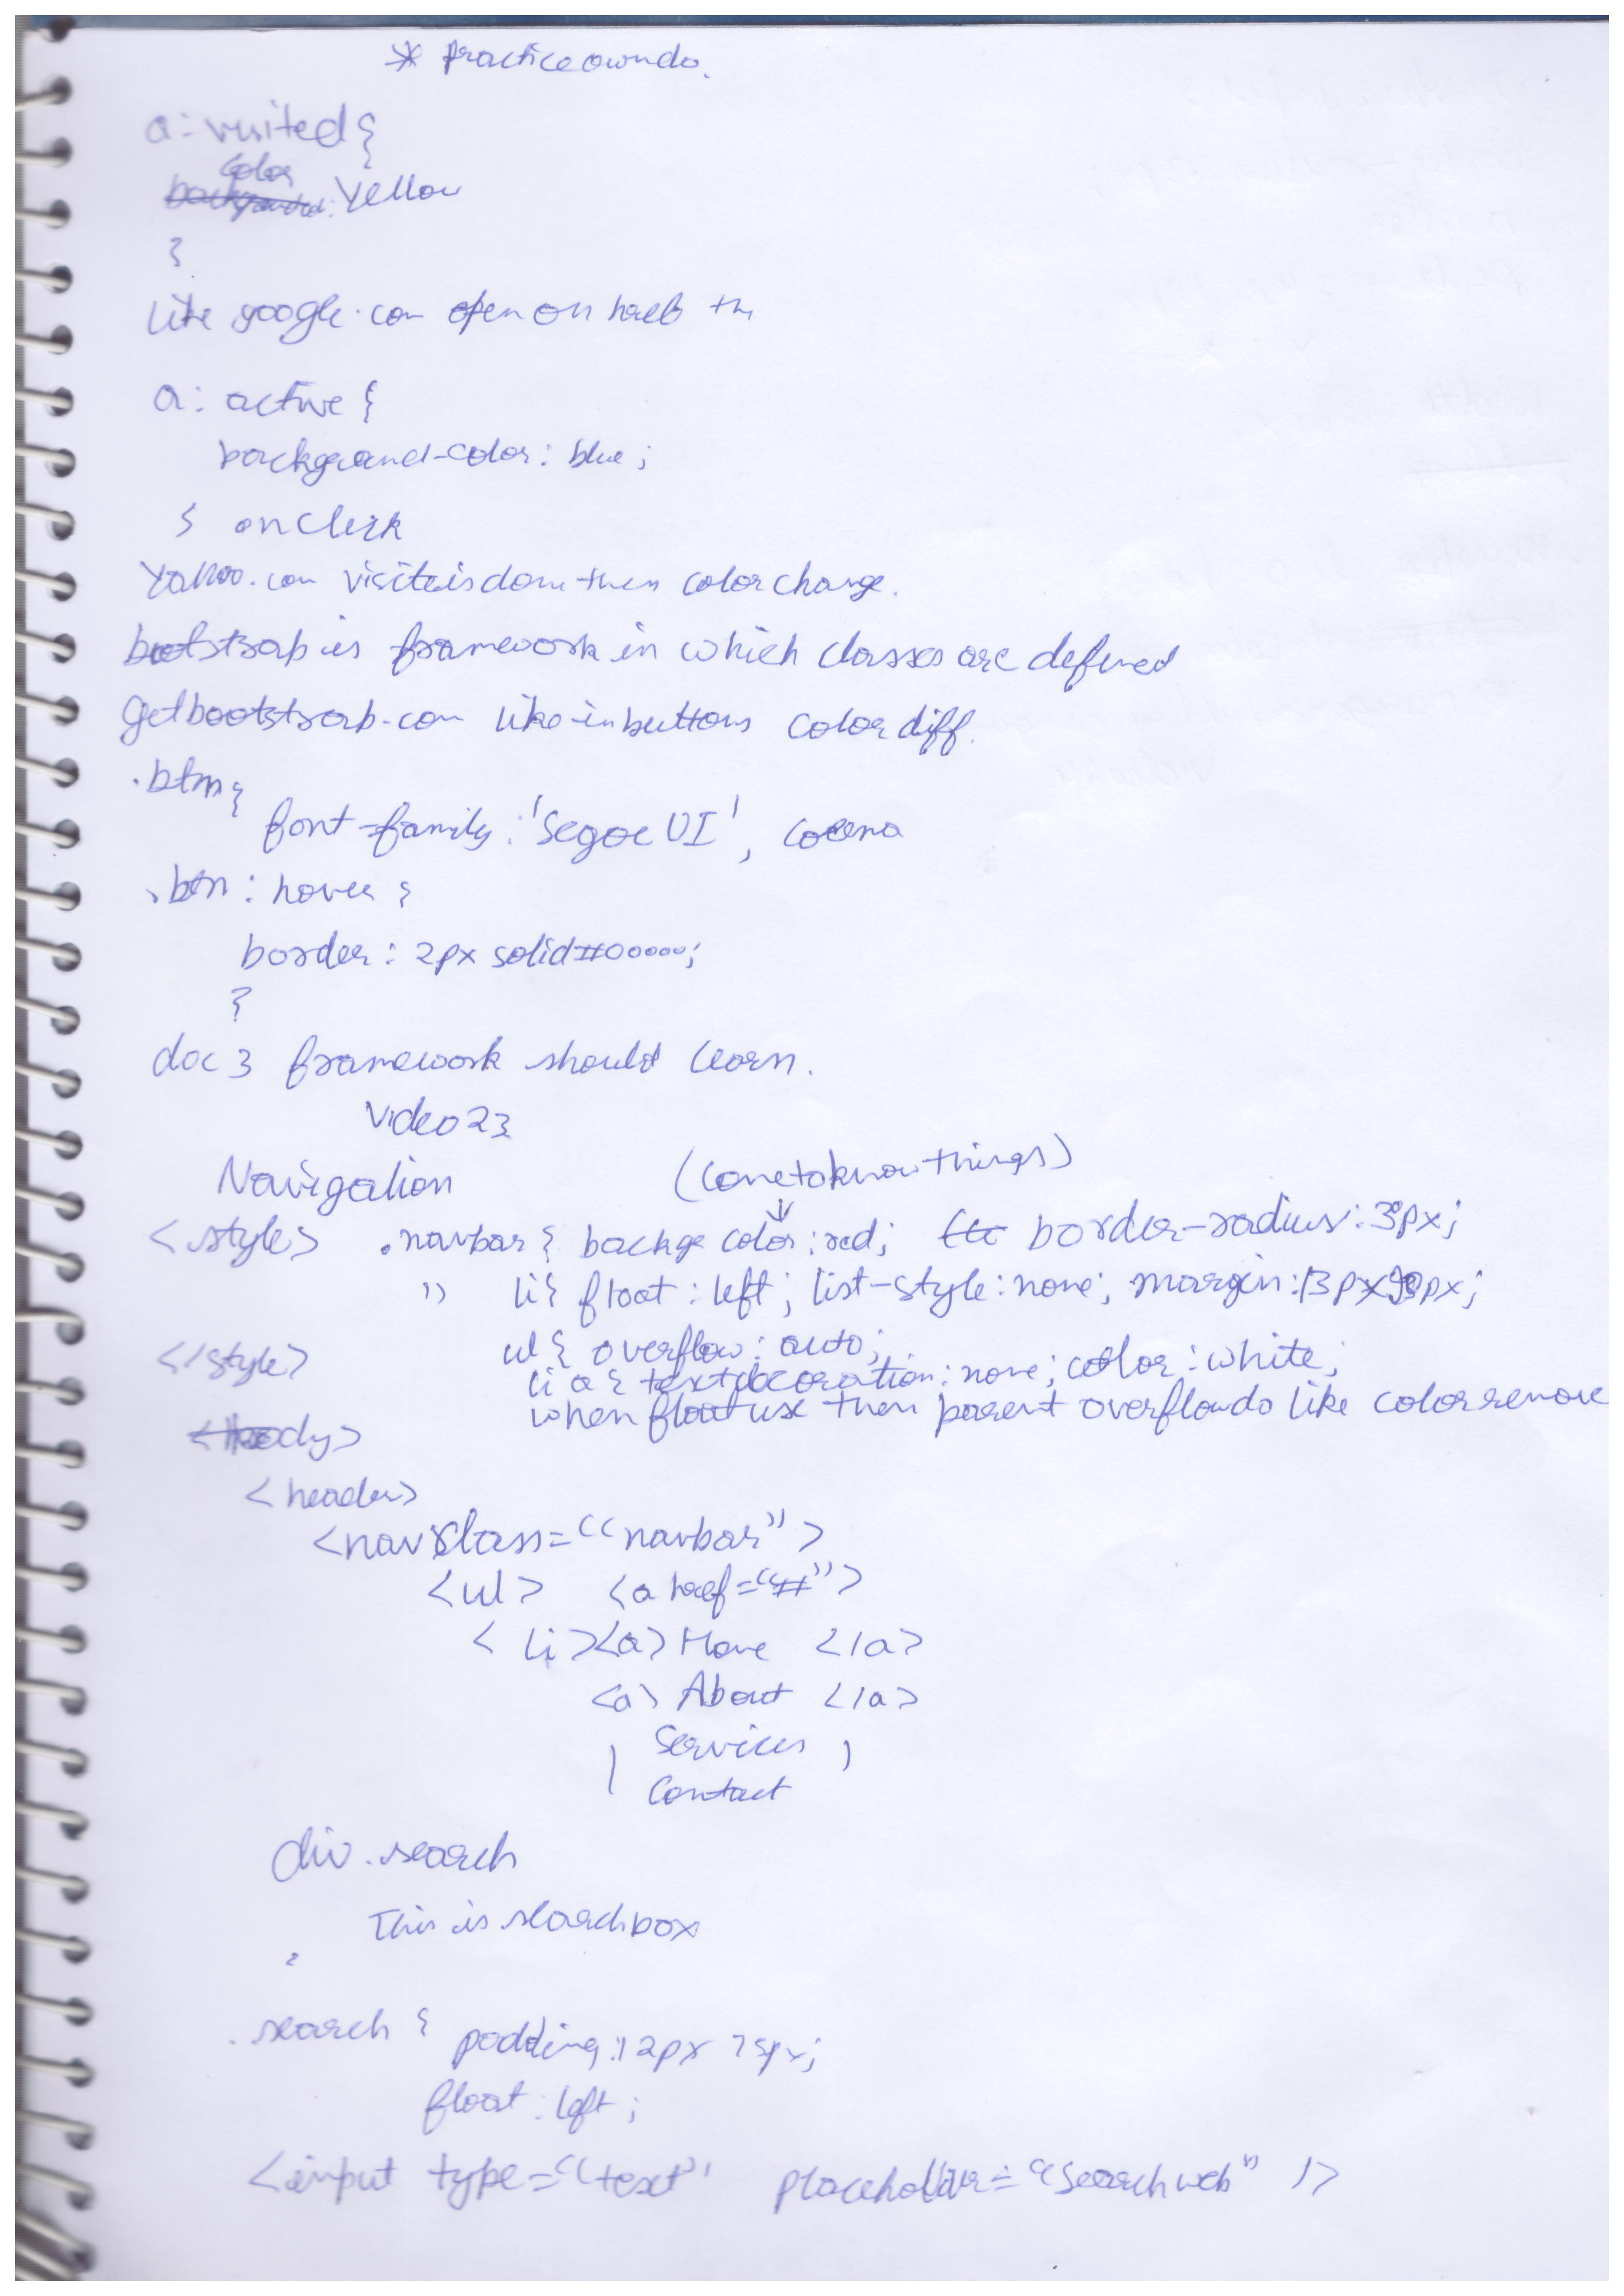 * practice own do.
a: visited {
color
background: Yellow
}
like google.com open on hoeb th
a: active {
background-color: blue;
} on click
Yahoo.com visite is done then color change.
bootstrap is framework in which classes are defined
getbootstrap.com like in buttons color diff.
.btn {
font-family: 'Segoe UI',
.btn: hover {
border: 2px solid #00000;
}
doc 3 framework should learn.
Video 23
Navigation (come to know things)
<style> .navbar { backg color: red; border-radius: 30px;
" li{ float: left; list-style: none; margin: 13px 20px;
ul { overflow: auto;
</style>
li a { text decoration: none; color: white;
when float use then parent overflow do like color remove
<body>
<header>
<nav class="navbar">
<ul> <a href="#">
<li><a> Home </a>
<a> About </a>
| Services )
Contact
div.search
This is search box
.search { padding: 12px 75px;
float: left;
<input type="text" placeholder="Search web" />